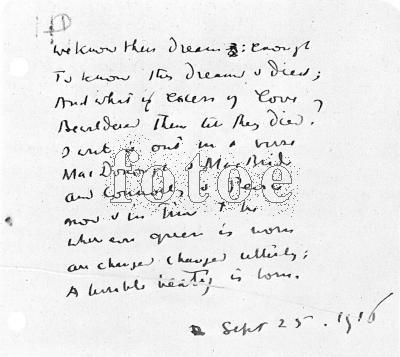 We know their dream; enough
To know they dreamed & died;
And what if excess of love
Bewildered them till they died?
I write it out in a verse
MacDonagh & MacBride
and Connolly & Pearse
now & in time to be
wherever green is worn
are changed changed utterly;
A terrible beauty is born.
Sept 25. 1916
fotoe